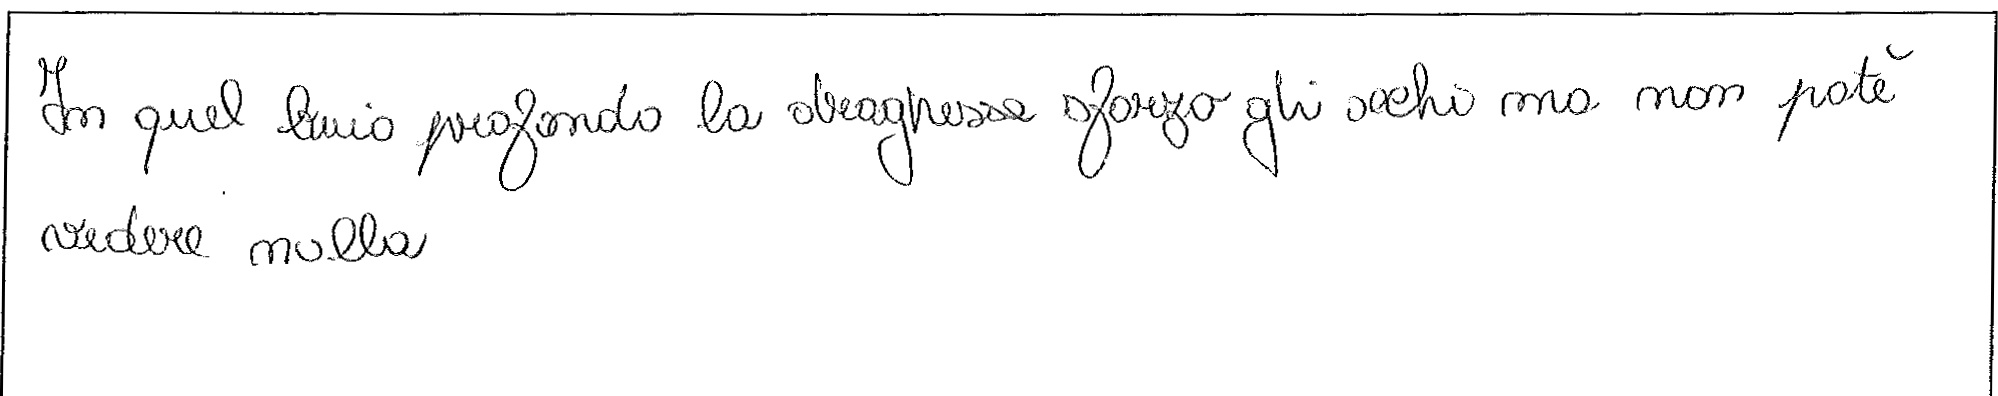 In quel buio profondo la draghessa sforzo gli occhi ma non potè
vedere nulla